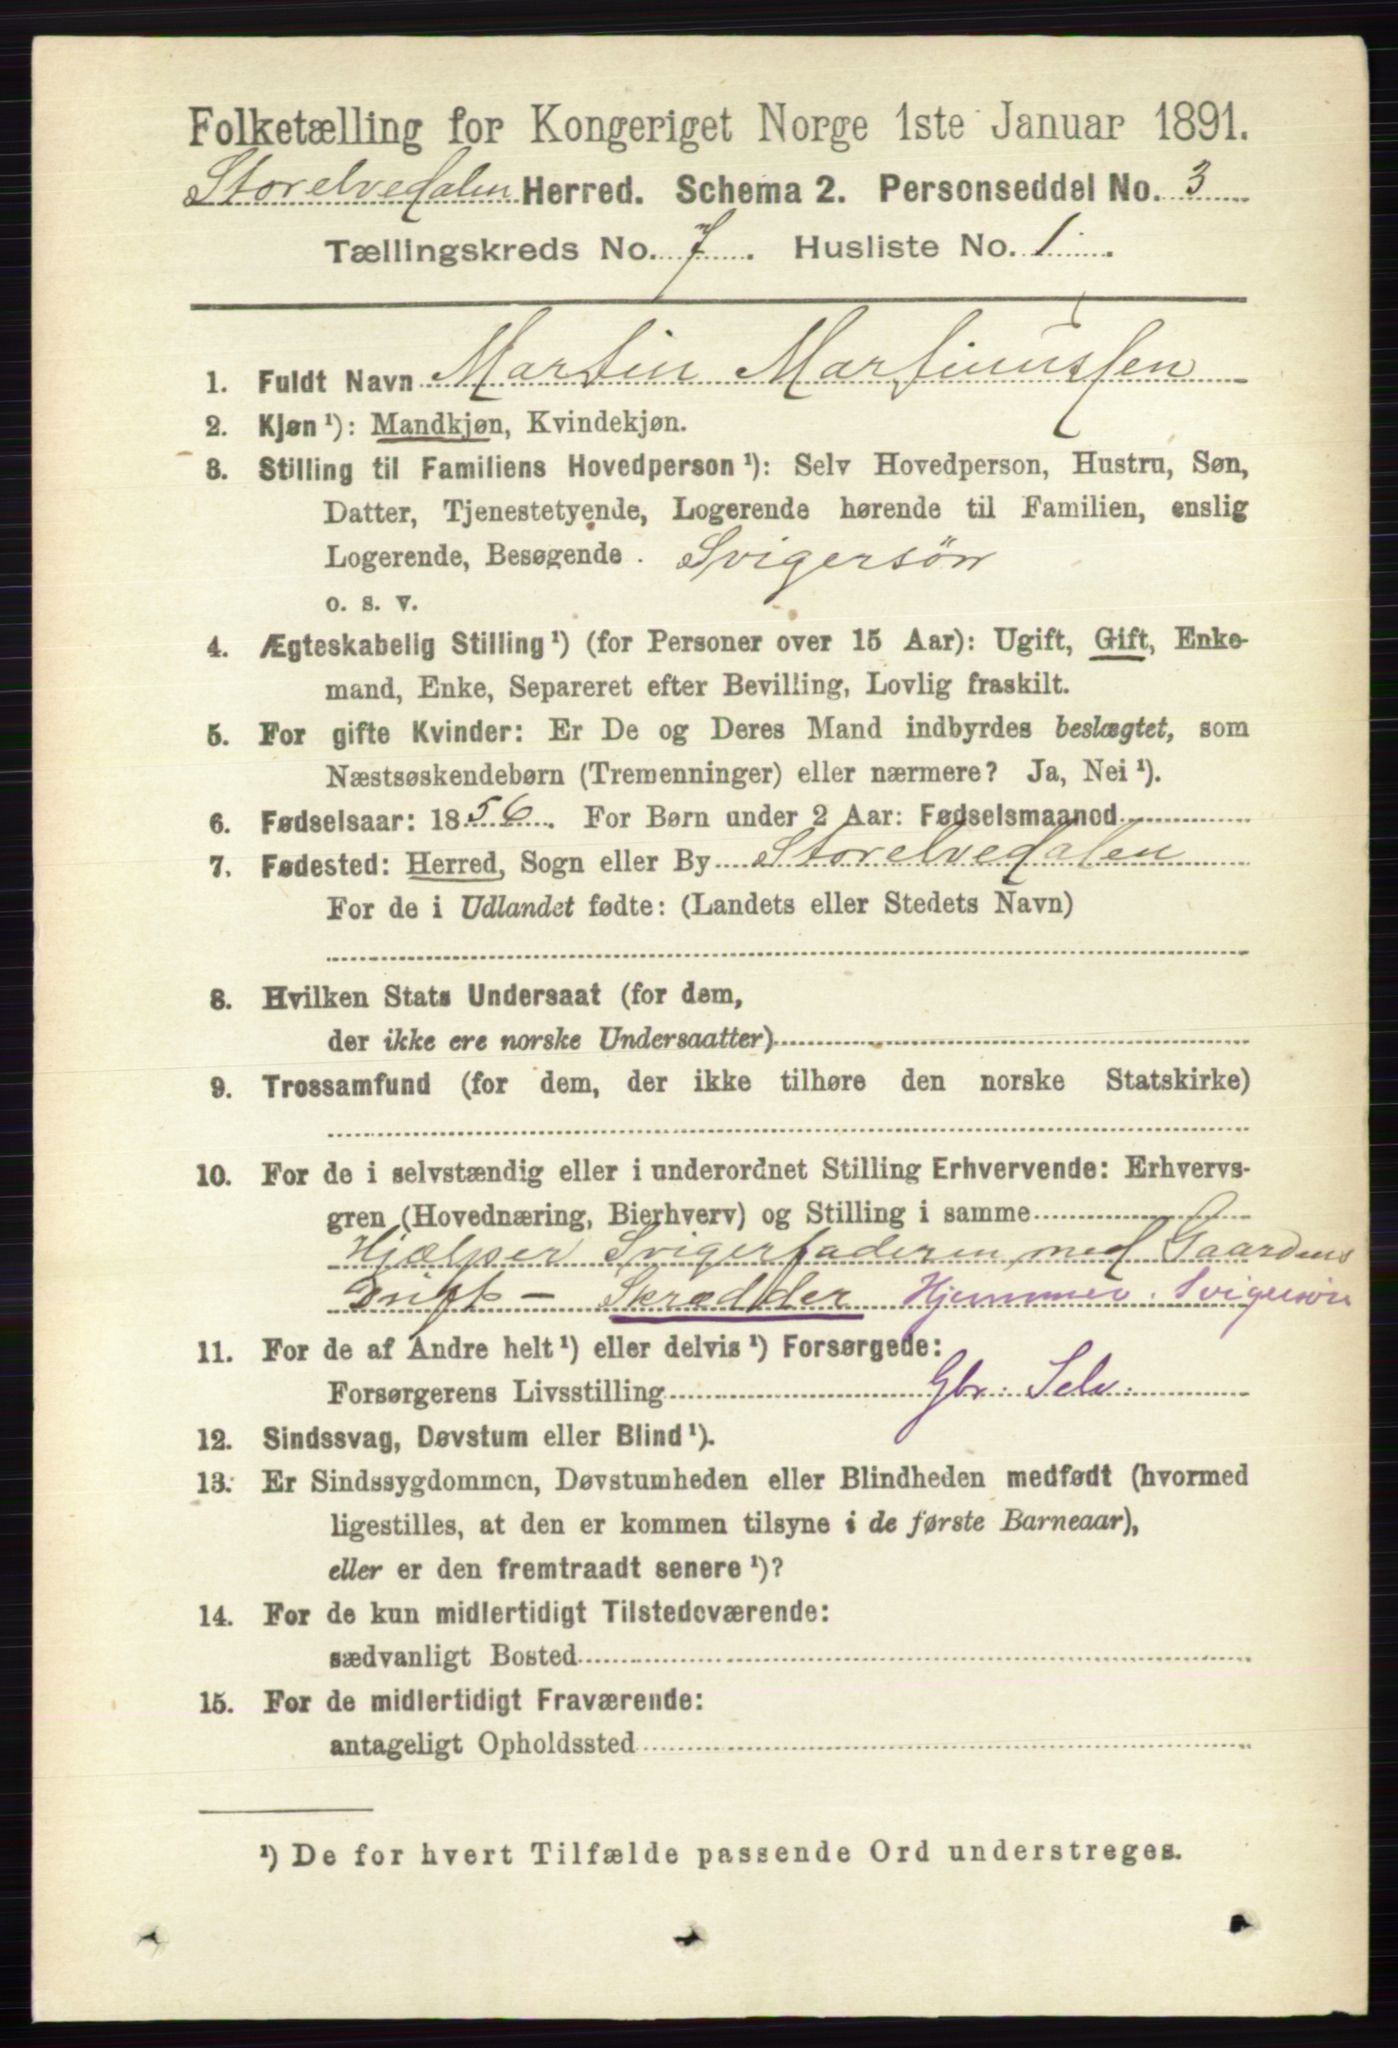 Folketælling for Kongeriget Norge 1ste Januar 1891.
Storelvedalen Herred. Schema 2. Personseddel No. 3
Tællingskreds No. 7. Husliste No. 1.
1. Fuldt Navn Martin Martinussen
2. Kjøn ¹): Mandkjøn, Kvindekjøn.
3. Stilling til Familiens Hovedperson ¹): Selv Hovedperson, Hustru, Søn,
Datter, Tjenestetyende, Logerende hørende til Familien, enslig
Logerende, Besøgende . Svigersön
o. s. v.
4. Ægteskabelig Stilling ¹) (for Personer over 15 Aar): Ugift, Gift, Enke-
mand, Enke, Separeret efter Bevilling, Lovlig fraskilt.
5. For gifte Kvinder: Er De og Deres Mand indbyrdes beslægtet, som
Næstsøskendebørn (Tremenninger) eller nærmere? Ja, Nei ¹).
6. Fødselsaar: 1856. For Børn under 2 Aar: Fødselsmaanod
7. Fødested: Herred, Sogn eller By Storelvedalen
For de i Udlandet fødte: (Landets eller Stedets Navn)
8. Hvilken Stats Undersaat (for dem,
der ikke ere norske Undersaatter)
9. Trossamfund (for dem, der ikke tilhøre den norske Statskirke)
10. For de i selvstændig eller i underordnet Stilling Erhvervende: Erhvervs-
gren (Hovednæring, Bierhverv) og Stilling i samme
Hjælper Svigerfaderen med Gaardens
Drift – Skrædder Hjemmev. Svigersön
11. For de af Andre helt ¹) eller delvis ¹) Forsørgede:
Forsørgerens Livsstilling Gbr. Selv.
12. Sindssvag, Døvstum eller Blind ¹).
13. Er Sindssygdommen, Døvstumheden eller Blindheden medfødt (hvormed
ligestilles, at den er kommen tilsyne i de første Barneaar),
eller er den fremtraadt senere ¹)?
14. For de kun midlertidigt Tilstedeværende:
sædvanligt Bosted
15. For de midlertidigt Fraværende:
antageligt Opholdssted
¹) De for hvert Tilfælde passende Ord understreges.